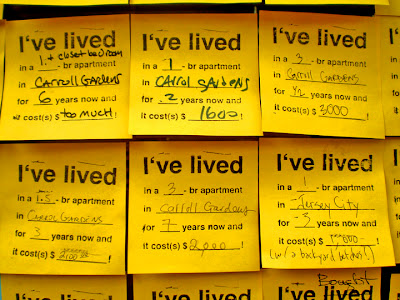 I've lived
in a 1 + closet bedroom
in Carroll Gardens
for 6 years now and
it cost(s) $ too much!
I've lived
in a 1 -br apartment
in Carrol Gardens
for .2 years now and
it cost(s) $ 1600 !
I've lived
in a 3 -br apartment
in Carroll Gardens
for years now and
it cost(s) $ 3000 !
I've lived
in a 1.5 -br apartment
in Carroll Gardens
for 3 years now and
it cost(s) $ 2100 !
I've lived
in a 3 -br apartment
in Carroll Gardens
for 7 years now and
it cost(s) $ 2,000 !
I've lived
in a 1 -br apartment
in Jersey City
for 3 years now and
it cost(s) $ !
(w/ a backyard
I've lived
I've lived
Bought
I've lived